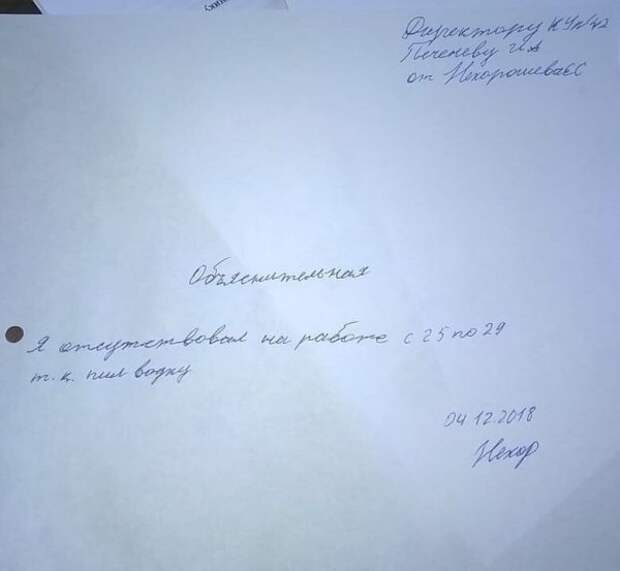 Директору КУ№42
Печеневу И.А
от Нехорошева ЕС
Объяснительная
Я отсутствовал на работе с 25 по 29
т.к. пил водку
04.12.2018
Нехор